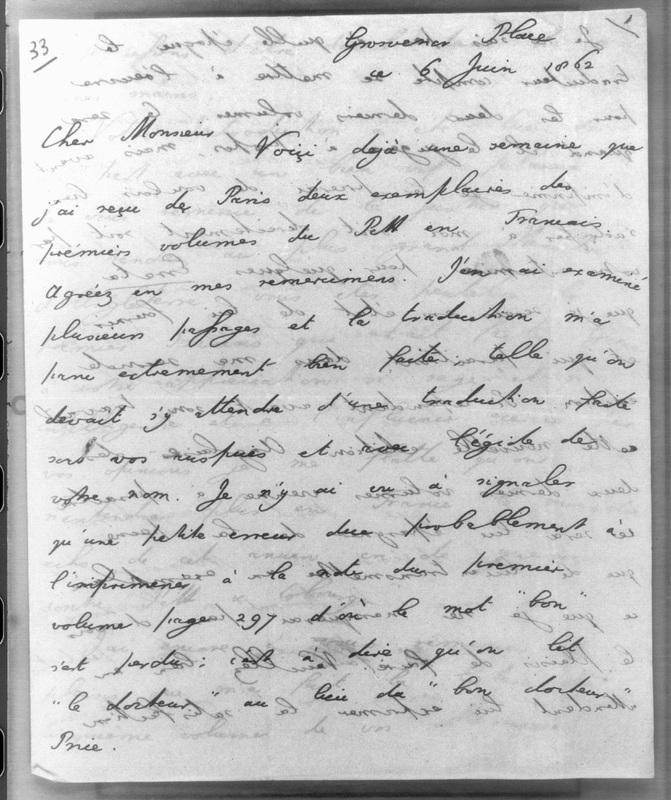 33
Grosvenor Place
ce 6 Juin 1862
Cher Monsieur
Voiçi dejà une semaine que
j'ai reçu de Paris deux exemplaires des
prémiers volumes du Pitt en Francais
Agréez en mes remercimens. J'en ai examiné
plusieurs passages et la traduction m'a
paru extremement bien faite: telle qu'on
devait s'y attendre d'une traduction faite
sous vos auspices et avec l'égide de
votre nom. Je n'y ai vu à signaler
qu'une petite erreur due probablement à
l'imprimerie à la note du premier
volume page 297 d'où le mot "bon"
s'est perdu: c'est à dire qu'on lit
"le docteur" au lieu du "bon docteur"
Price.